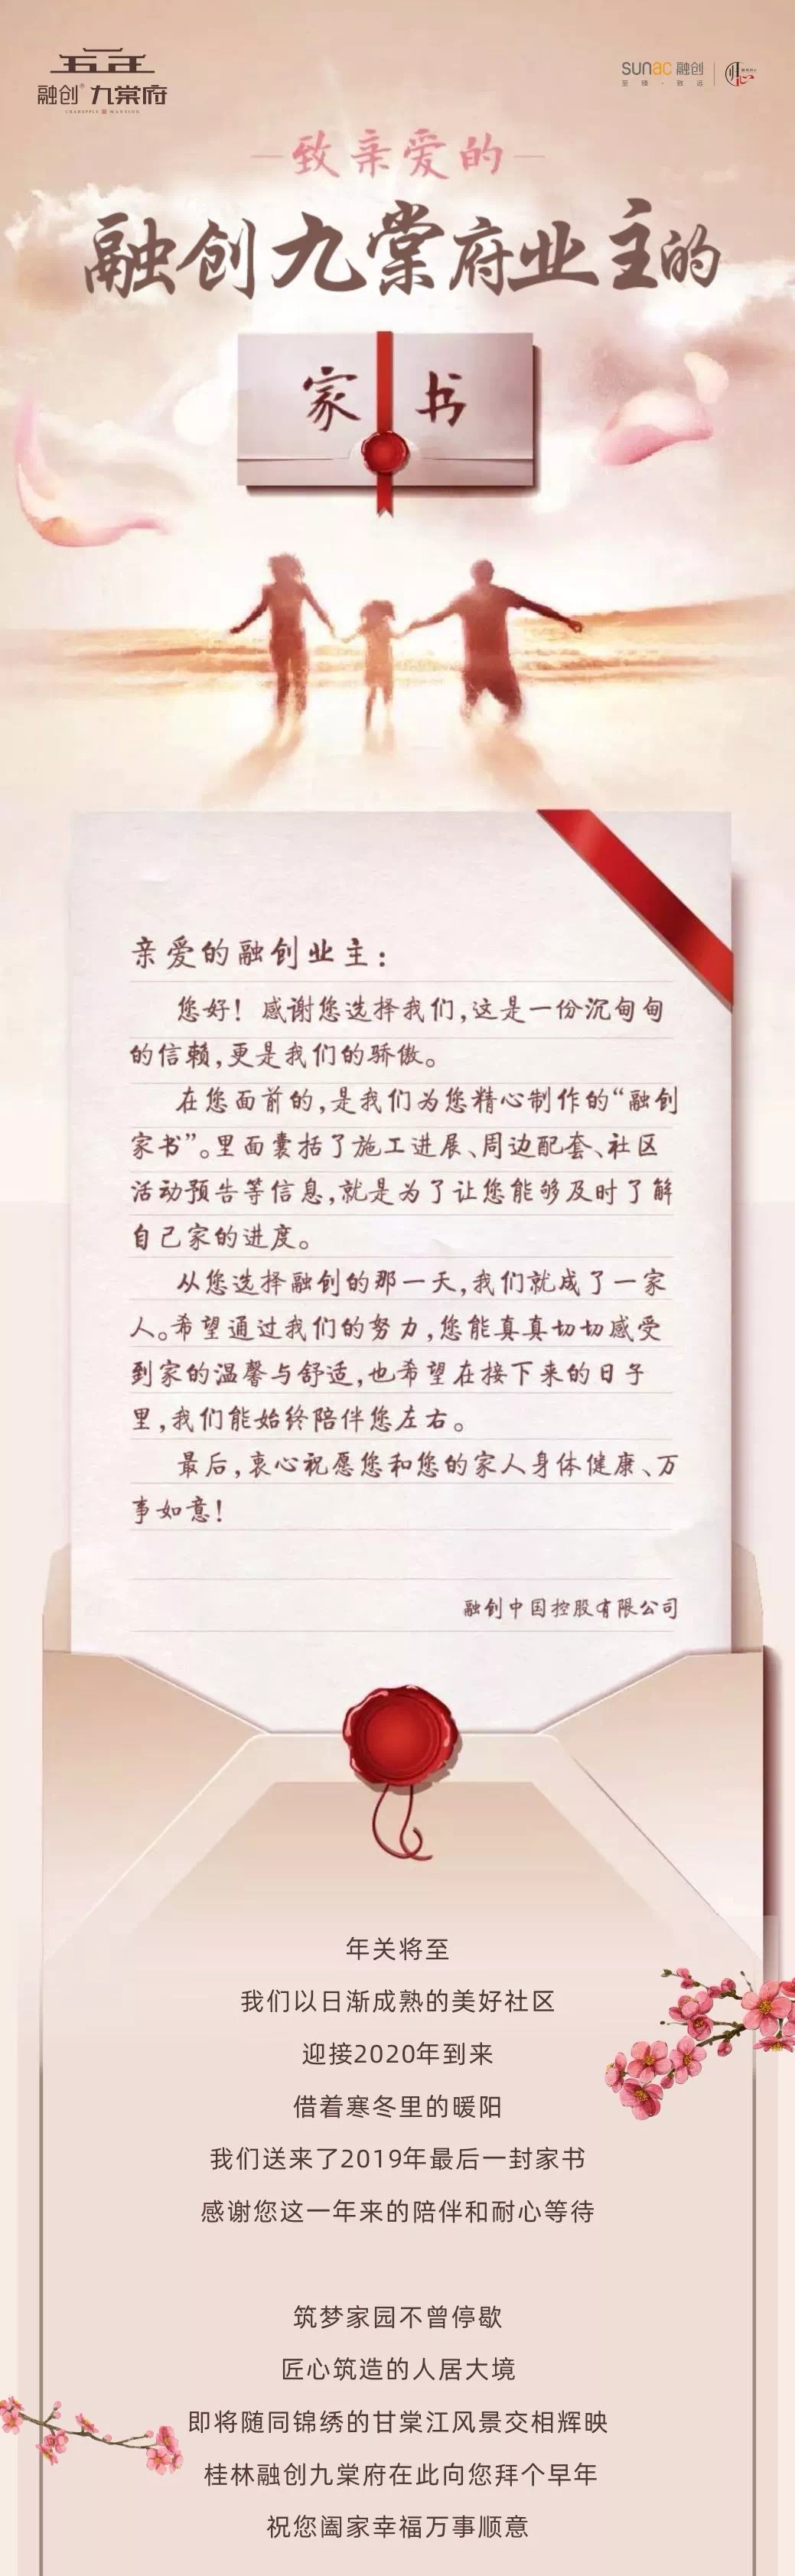 融创 九棠府
CHERAPPLE MANSION
sunac 融创
至臻·致远
归心
致亲爱的
融创九棠府业主的
家书
亲爱的融创业主：
您好！感谢您选择我们，这是一份沉甸甸
的信赖，更是我们的骄傲。
在您面前的，是我们为您精心制作的“融创
家书”。里面囊括了施工进展、周边配套、社区
活动预告等信息，就是为了让您能够及时了解
自己家的进度。
从您选择融创的那一天，我们就成了一家
人。希望通过我们的努力，您能真真切切感受
到家的温馨与舒适，也希望在接下来的日子
里，我们能始终陪伴您左右。
最后，衷心祝愿您和您的家人身体健康、万
事如意！
融创中国控股有限公司
年关将至
我们以日渐成熟的美好社区
迎接2020年到来
借着寒冬里的暖阳
我们送来了2019年最后一封家书
感谢您这一年来的陪伴和耐心等待
筑梦家园不曾停歇
匠心筑造的人居大境
即将随同锦绣的甘棠江风景交相辉映
桂林融创九棠府在此向您拜个早年
祝您阖家幸福万事顺意